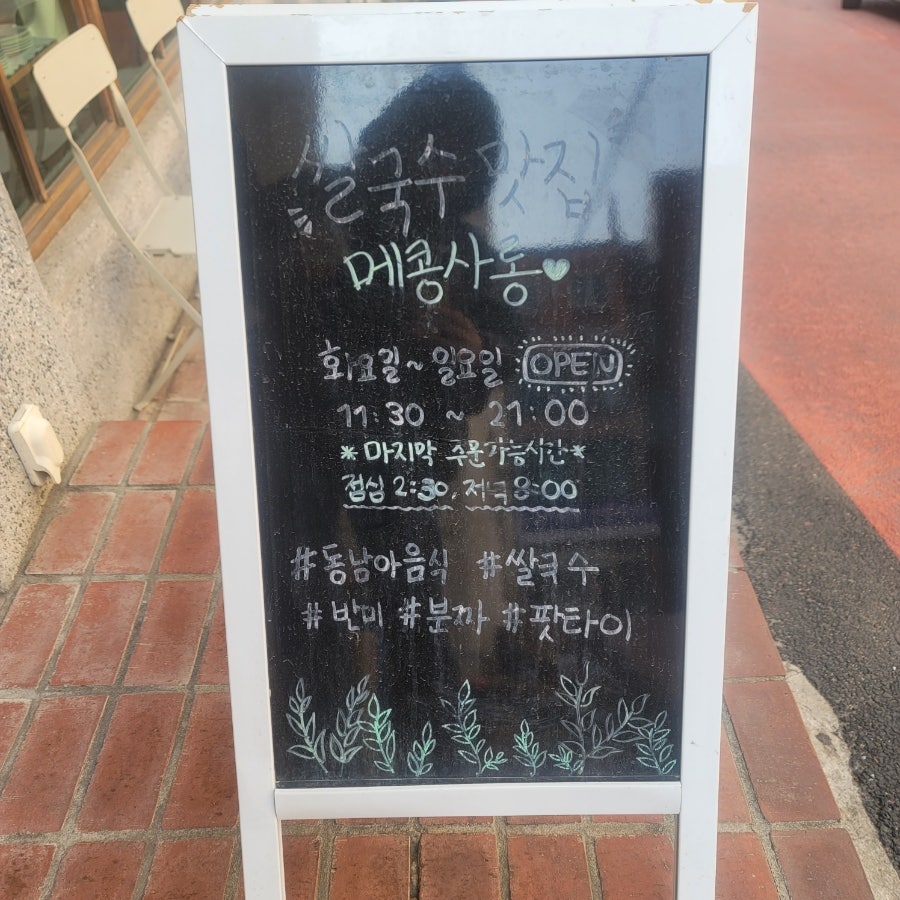 쌀국수 맛집
메콩사롱♥
화요일~일요일 OPEN
11:30 ~ 21:00
*마지막 주문가능시간*
점심 2:30, 저녁 8:00
#동남아음식 #쌀국수
#반미 #분짜 #팟타이